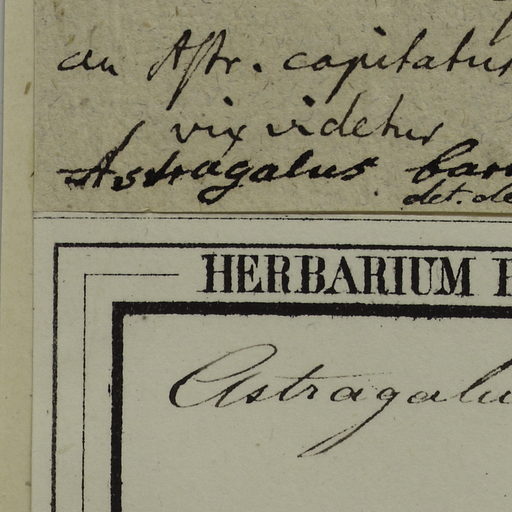 an Astr. capitatus
vix videtur
Astragalus bar
det. de
HERBARIUM
Astragalu